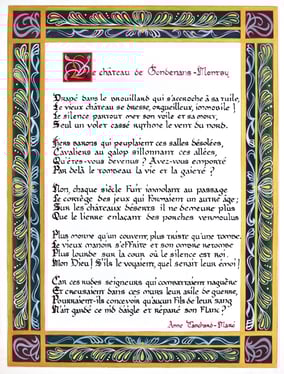 Le château de Gondenans-Montby
Drapé dans le brouillard qui s'accroche à sa tuile,
Le vieux château se dresse, orgueilleux, immobile !
Le silence partout met son voile et sa mort,
Seul un volet cassé rythme le vent du nord.
Fiers barons qui peupliez ces salles désolées,
Cavaliers au galop sillonnant ces allées,
Qu'êtes-vous devenus ? Avez-vous emporté
Par delà le tombeau la vie et la gaieté ?
Non, chaque siècle fuit immolant au passage
Le cortège des jeux qui formaient un autre âge ;
Sur les châteaux béants il ne demeure plus
Que le lierre enlaçant des porches vermoulus
Plus morne qu'un couvent, plus triste qu'une tombe.
Le vieux manoir s'effrite et son ombre retombe
Plus lourde sur la cour où le silence est roi.
Mon Dieu ! S'ils le voyaient, quel serait leur émoi !
Car ces rudes seigneurs qui combattaient naguère
Et creusaient dans ces murs leur asile de guerre,
Pourraient-ils concevoir qu'aucun fils de leur sang
N'ait gardé ce nid d'aigle et réparé son flanc ?
Anne